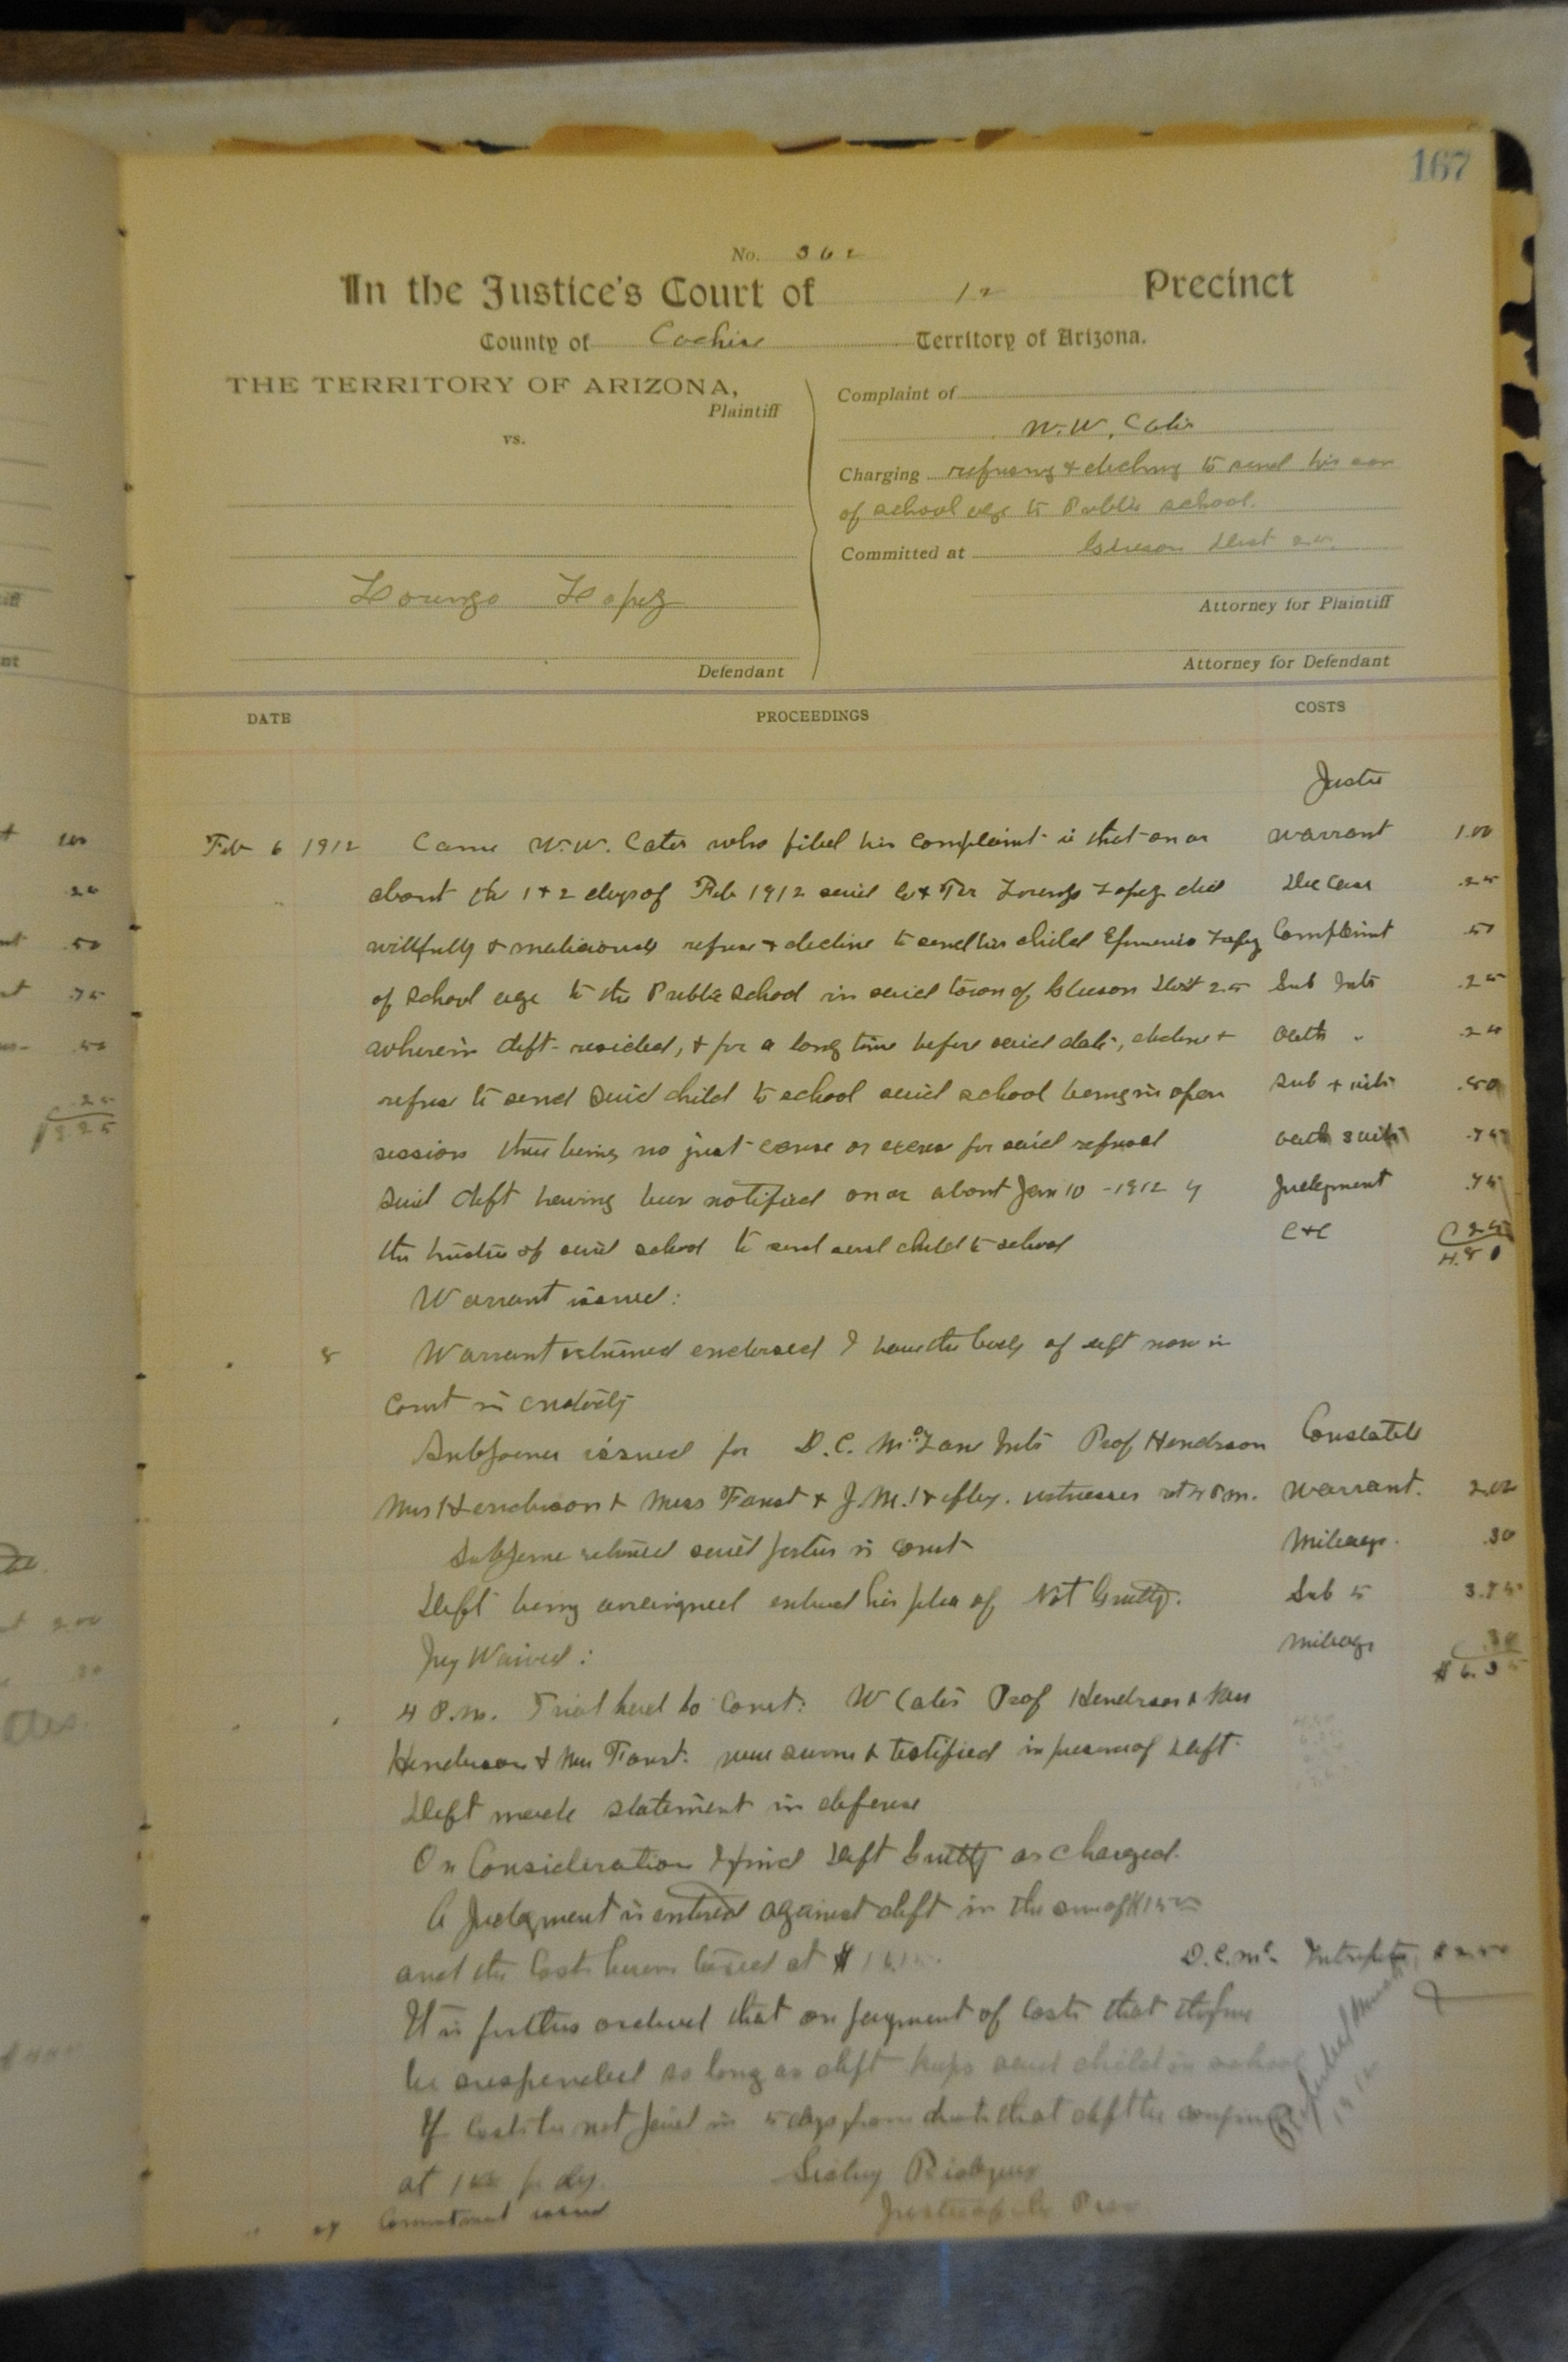 167
No. 362
In the Justice's Court of 12 Precinct
County of Cochise Territory of Arizona.
THE TERRITORY OF ARIZONA,
Plaintiff
vs.
Lorenzo Lopez
Defendant
Complaint of
W. W. Cates
Charging refusing & declining to send his son
of school age to Public school.
Committed at Gleeson Dist
Attorney for Plaintiff
Attorney for Defendant
DATE PROCEEDINGS COSTS
Justice
Feb 6 1912 Came W. W. Cates who filed his complaint that on or Warrant 1.00
about the 1 & 2 days of Feb 1912 said Co & Ter Lorenzo Lopez did Doc Case .25
willfully & maliciously refuse & decline to send his child Lopez Complaint .50
of school age to the Public School in said town of Gleeson Dist 25 Sub Intr .25
wherein deft resided, & for a long time before said date, decline & Oath " .25
refuse to send said child to school said school being in open Sub + wits .50
session there being no just cause or excuse for said refusal Oath 3 wits .75
Said deft having been notified on or about Jan 10 - 1912 by Judgment .75
the trustee of said school to send said child to school C & C .25
4.50
Warrant issued:
8 Warrant returned endorsed I have the body of deft now in
Court in custody
Subpoena issued for D. C. Intr Prof Henderson Constable
Mrs Henderson & Miss Faust & J. M. witnesses ret 4 P.m. Warrant. 2.00
Subpoena returned said parties in court Mileage. .30
Deft being arraigned entered his plea of Not Guilty. Sub 5 3.75
Jury Waived: Mileage .30
$6.35
4 P.m. Trial had to Court: W Cates Prof Henderson & Mrs
Henderson & Miss Faust were sworn & testified in presence of Deft
Deft made statement in defense
On Consideration I find Deft Guilty as charged.
A Judgment is entered against deft in the sum of $15.00
and the Costs herein taxed at $
D. C. Mc
It is further ordered that on payment of Costs that the fine
be suspended so long as deft keeps said child in school
If Costs be not paid in 5 days from date that deft be confined
at 1.00 pr day.
Justice of the Peace
Commitment issued